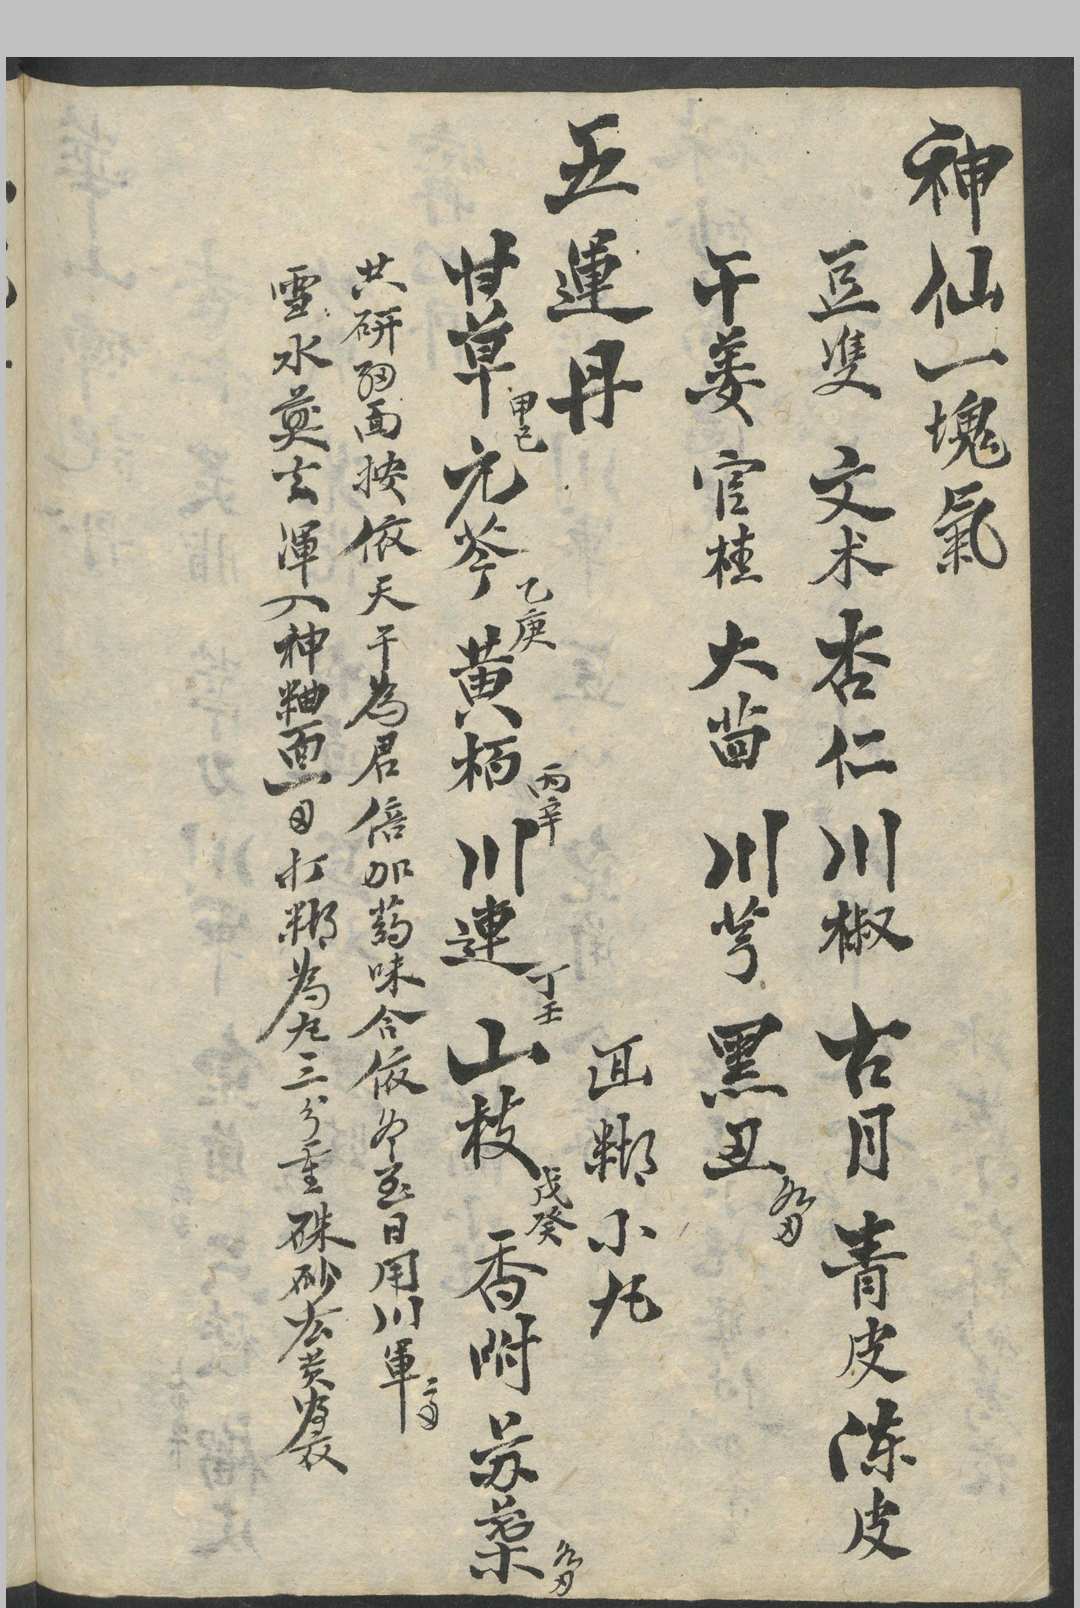 神仙一塊氣
豆隻 文术 杏仁 川椒 古月 青皮 陳皮
干姜 官桂 大茴 川芎 黑丑
糊小丸
五運丹
甘草 甲己 元芩 乙庚 黄柏 丙辛 川連 丁壬 山枝 戊癸 香附 苏葉
共研細面按依天干為君倍加药味合依冬至日用川軍
雪水煎去渾入神粬面一 打糊為丸三分重硃砂為衣